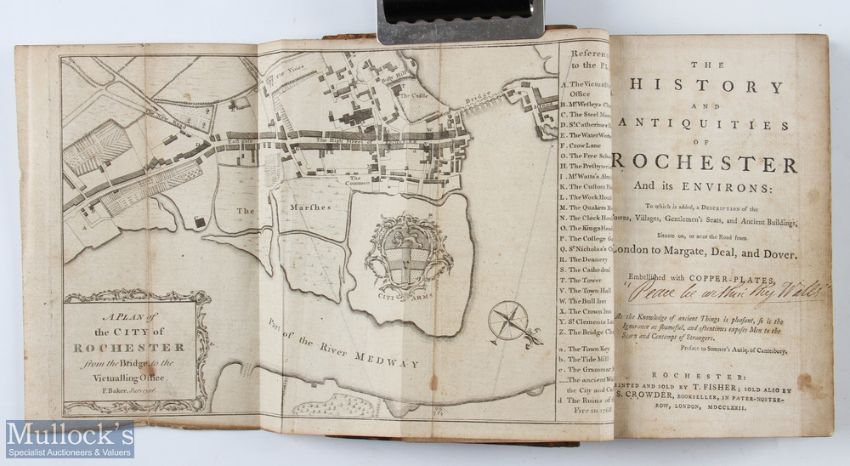 The Vines
Boley Hill
The Castle
Bridge
East Gate
High Street
The Common
The Marshes
CITY ARMS
Part of the River MEDWAY
A PLAN of
the CITY of
ROCHESTER
from the Bridge to the
Victualling Office
F. Baker, Surveyor.
Referen
to the Pl
A. The Victual
Office
B. Mr. Wesleys Ch
C. The Steel Man
D. St. Catherines
E. The Water Wo
F. Crow Lane
G. The Free Scho
H. The Presbyter
I. Mr. Watts's Alm
K. The Custom Ho
L. The Work Hous
M. The Quakers M
N. The Check Hou
O. The Kings Head
P. The College G
Q. St. Nicholas's C
R. The Deanery
S. The Cathedral
T. The Tower
V. The Town Hall
W. The Bull Inn
X. The Crown Inn
Y. St. Clements La
Z. The Bridge Cha
a. The Town Key
b. The Tide Mill
c. The Grammar S
the ancient Wal
the City and Ca
d The Ruins of
Fire in 1768
THE
HISTORY
AND
ANTIQUITIES
OF
ROCHESTER
And its ENVIRONS:
To which is added, a DESCRIPTION of the
Towns, Villages, Gentlemen's Seats, and Ancient Buildings,
Situate on, or near the Road from
London to Margate, Deal, and Dover.
Embellished with COPPER-PLATES.
"Peace be within thy Walls"
As the Knowledge of ancient Things is pleasant, so is the
Ignorance as shameful, and oftentimes exposes Men to the
Scorn and Contempt of Strangers.
Preface to Somner's Antiq. of Canterbury.
ROCHESTER:
PRINTED AND SOLD BY T. FISHER; SOLD ALSO BY
S. CROWDER, BOOKSELLER, IN PATER-NOSTER-
ROW, LONDON, MDCCLXXII.
Mullock's
Specialist Auctioneers & Valuers